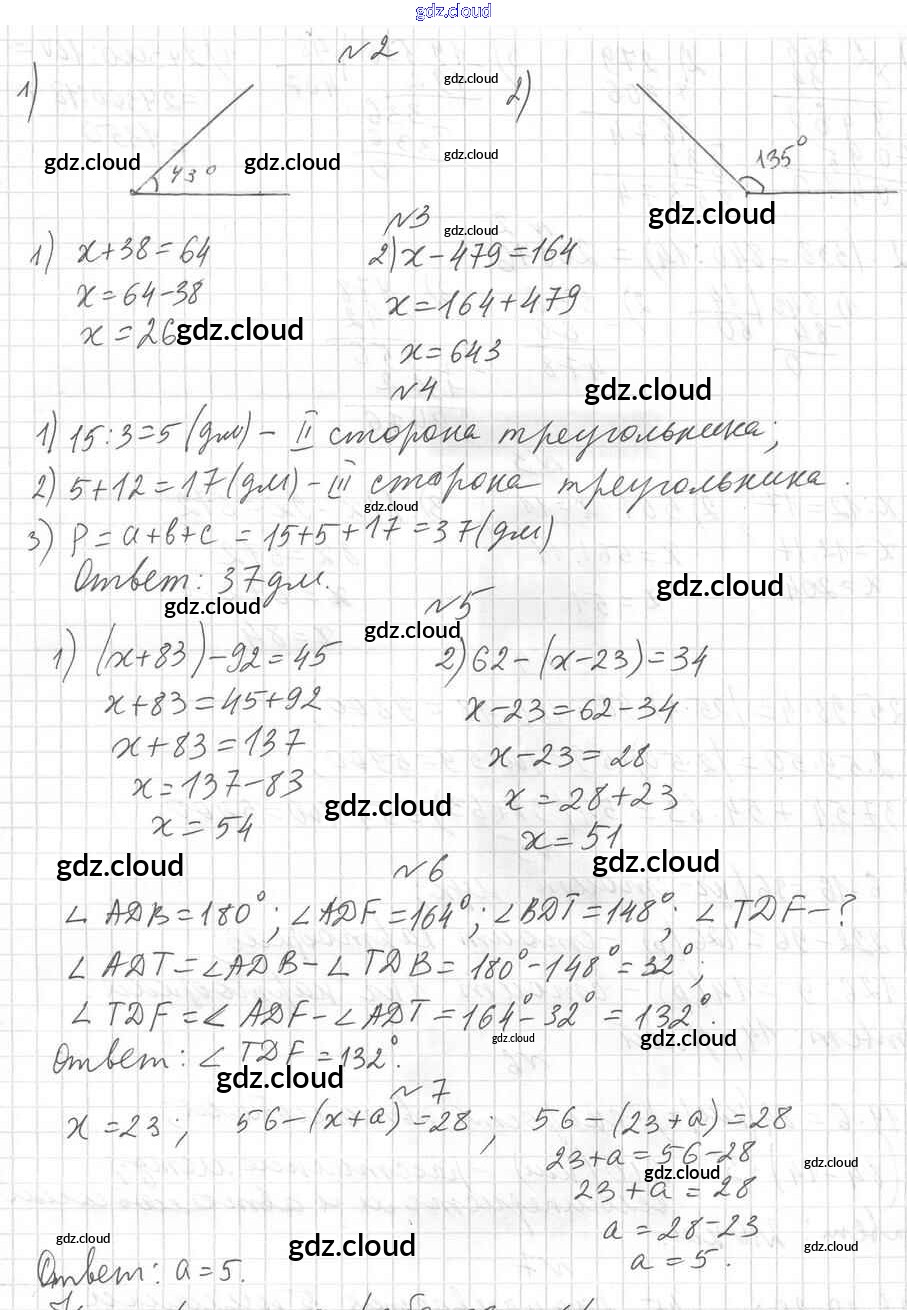 gdz.cloud
№2
1) 43° 2) 135°
gdz.cloud
gdz.cloud gdz.cloud gdz.cloud
gdz.cloud
№3
gdz.cloud
1) x+38=64 2) x-479=164
x=64-38 x=164+479
x=26 x=643
gdz.cloud
№4
gdz.cloud
1) 15:3=5 (дм) - II сторона треугольника;
2) 5+12=17 (дм) - III сторона треугольника.
gdz.cloud
3) P=a+b+c=15+5+17=37 (дм)
Ответ: 37 дм.
gdz.cloud
gdz.cloud
№5
gdz.cloud
1) (x+83)-92=45 2) 62-(x-23)=34
x+83=45+92 x-23=62-34
x+83=137 x-23=28
x=137-83 x=28+23
x=54 x=51
gdz.cloud
gdz.cloud gdz.cloud
№6
∠ADB=180°; ∠ADF=164°; ∠BDT=148°; ∠TDF-?
∠ADT=∠ADB-∠TDB=180°-148°=32°;
∠TDF=∠ADF-∠ADT=164°-32°=132°.
gdz.cloud gdz.cloud
Ответ: ∠TDF=132°.
gdz.cloud
№7
x=23; 56-(x+a)=28; 56-(23+a)=28
23+a=56-28
gdz.cloud gdz.cloud
23+a=28
a=28-23
a=5.
gdz.cloud gdz.cloud gdz.cloud
Ответ: a=5.